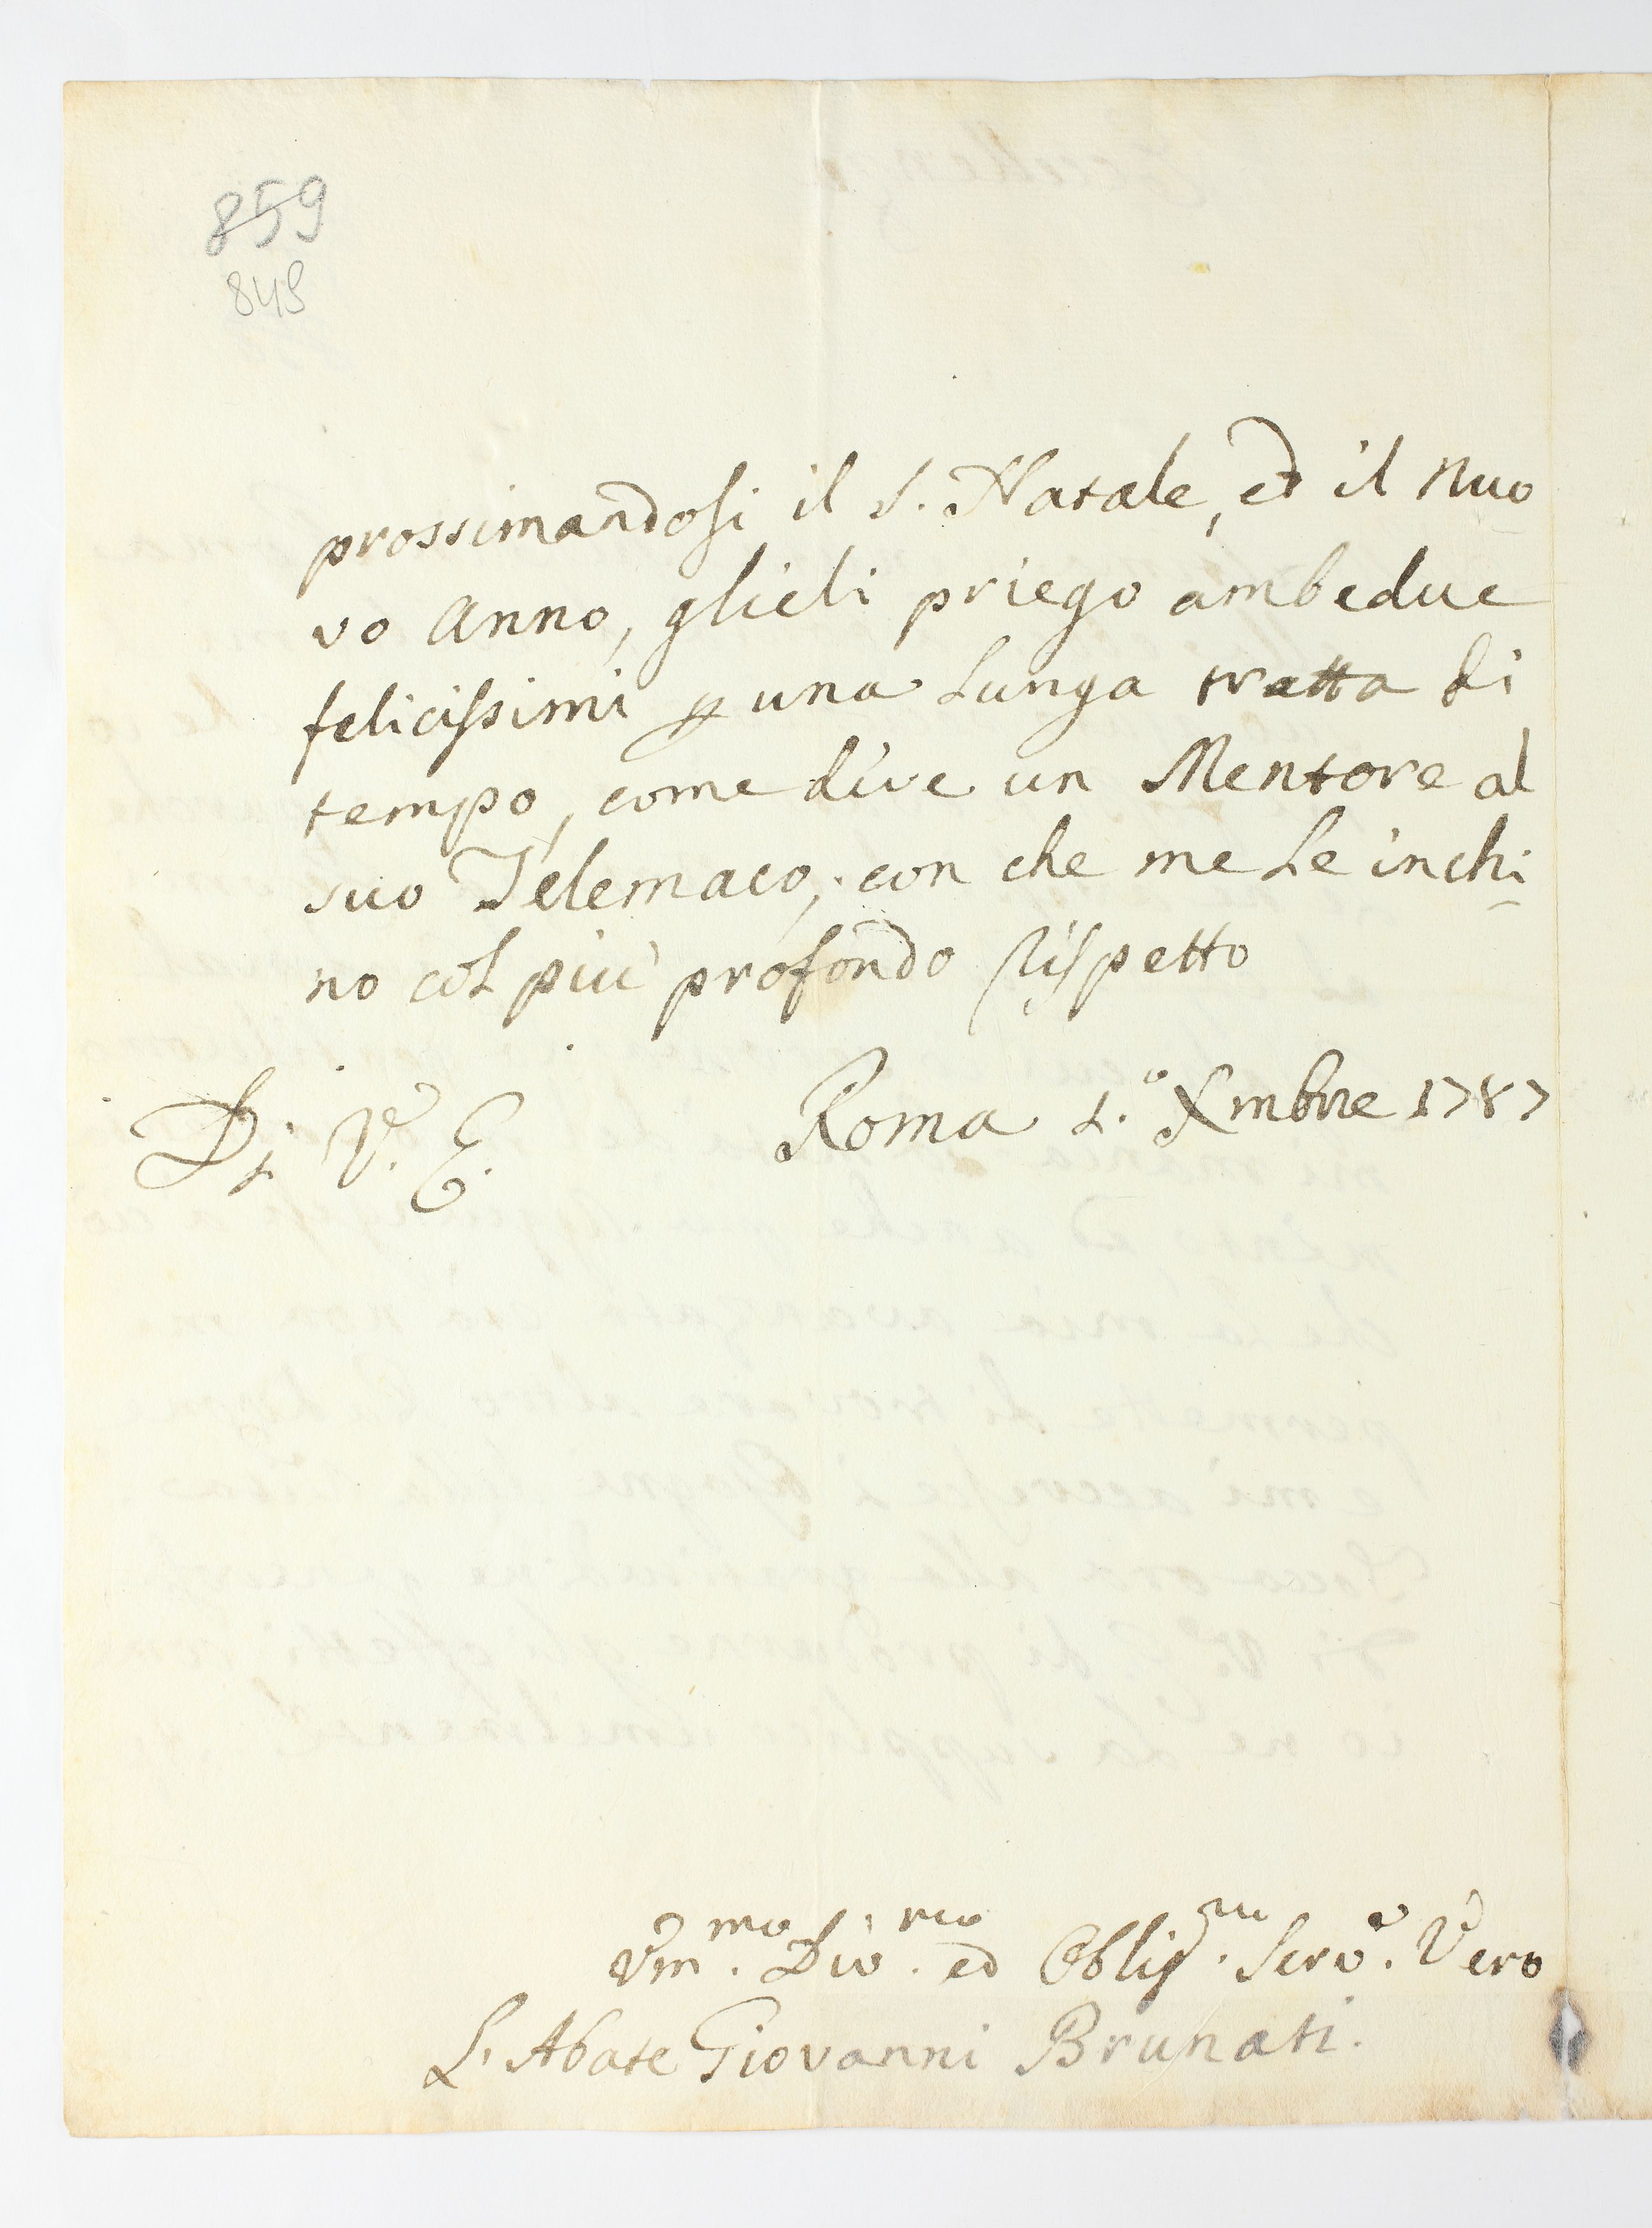 859
849
prossimandosi il S. Natale, ed il nuo
vo Anno, glieli priego ambedue
felicissimi p una Lunga tratta di
tempo, come dive un Mentore al
suo Telemaco; con che me Le inchi
no col più profondo Rispetto
Di V. E. Roma 1.° Xmbre 1787
Vm.mo Div.mo ed Oblig.mo Serv.e Vero
L'Abate Giovanni Brunati.